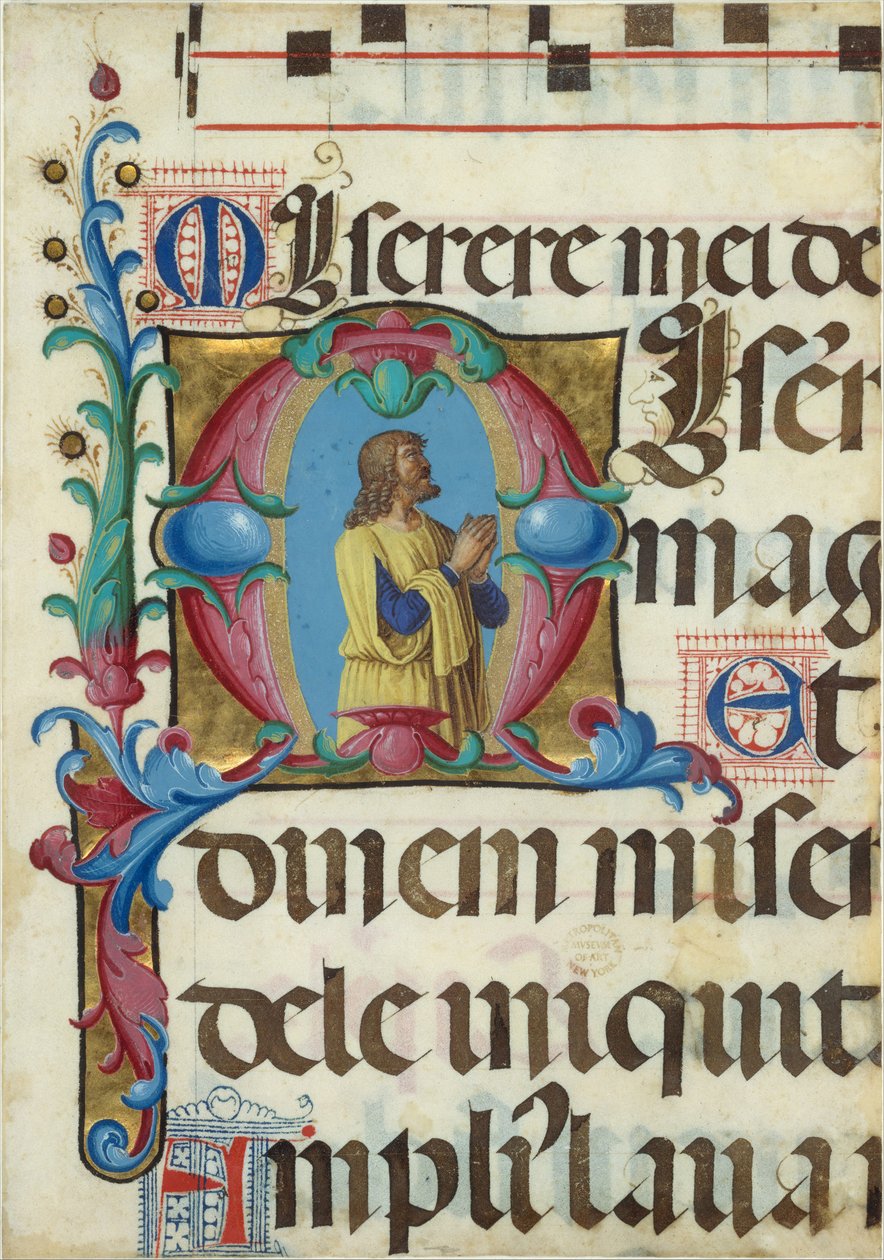 MIserere mei de
MIsér
mag
Et
dinem miser
dele iniquit
Ampliʼ laua
METROPOLITAN
MVSEVM
OF ART
NEW YORK